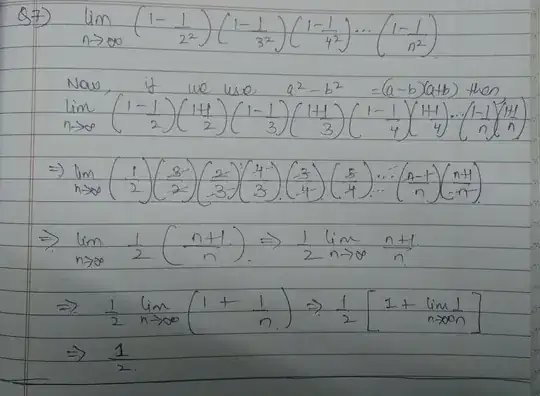 Q7) lim n→∞ (1 - 1/2²) (1 - 1/3²) (1 - 1/4²) ... (1 - 1/n²)
Now, if we use a² - b² = (a-b)(a+b) then,
lim n→∞ (1 - 1/2) (1+1/2) (1 - 1/3) (1+1/3) (1 - 1/4) (1+1/4) ... (1 - 1/n) (1+1/n)
⇒ lim n→∞ (1/2) (3/2) (2/3) (4/3) (3/4) (5/4) ... (n-1/n) (n+1/n)
⇒ lim n→∞ 1/2 (n+1/n) ⇒ 1/2 lim n→∞ n+1/n
⇒ 1/2 lim n→∞ (1 + 1/n) ⇒ 1/2 [1 + lim n→∞ 1/n]
⇒ 1/2.